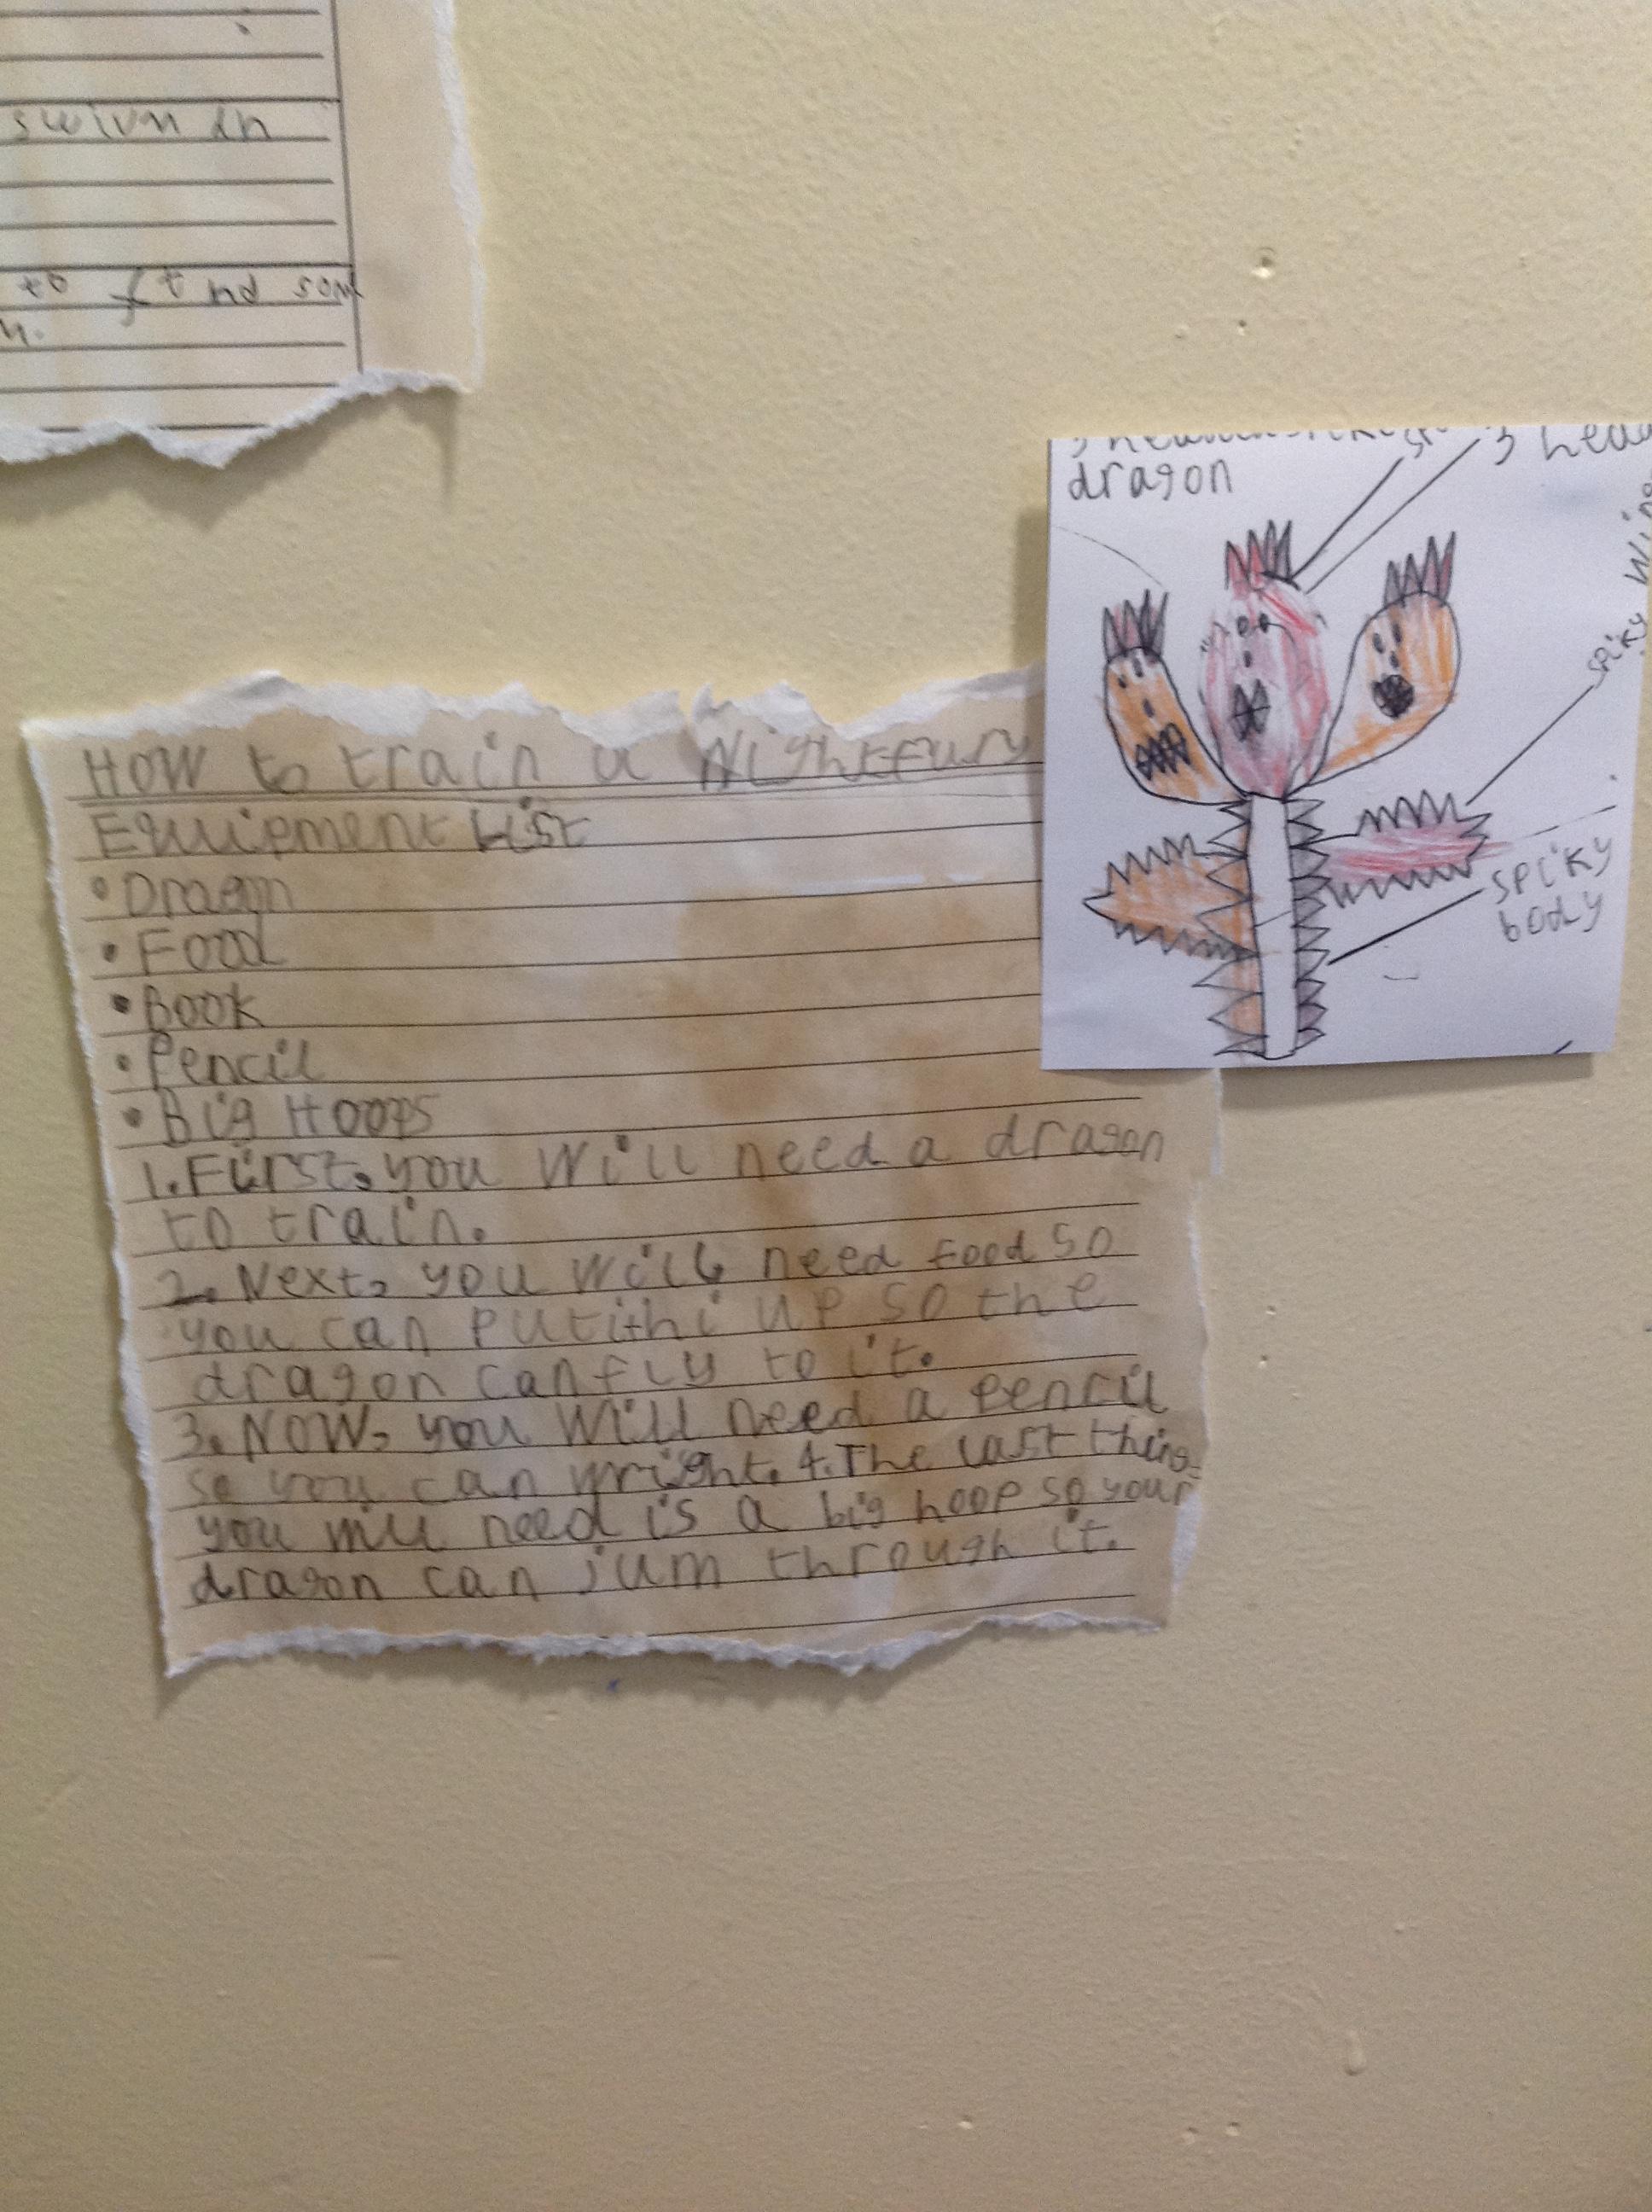 swivn in
to find som
How to train a Nightfury
Equipment List
• Dragon
• Food
• Book
• Pencil
• Big Hoops
1. First, you will need a dragon
to train.
2. Next, you will need food so
you can put up so the
dragon can fly to it.
3. Now, you will need a pencil
so you can wright. 4. The last thing
you will need is a big hoop so your
dragon can jum through it.
dragon
3 head
spiky win
spiky
body